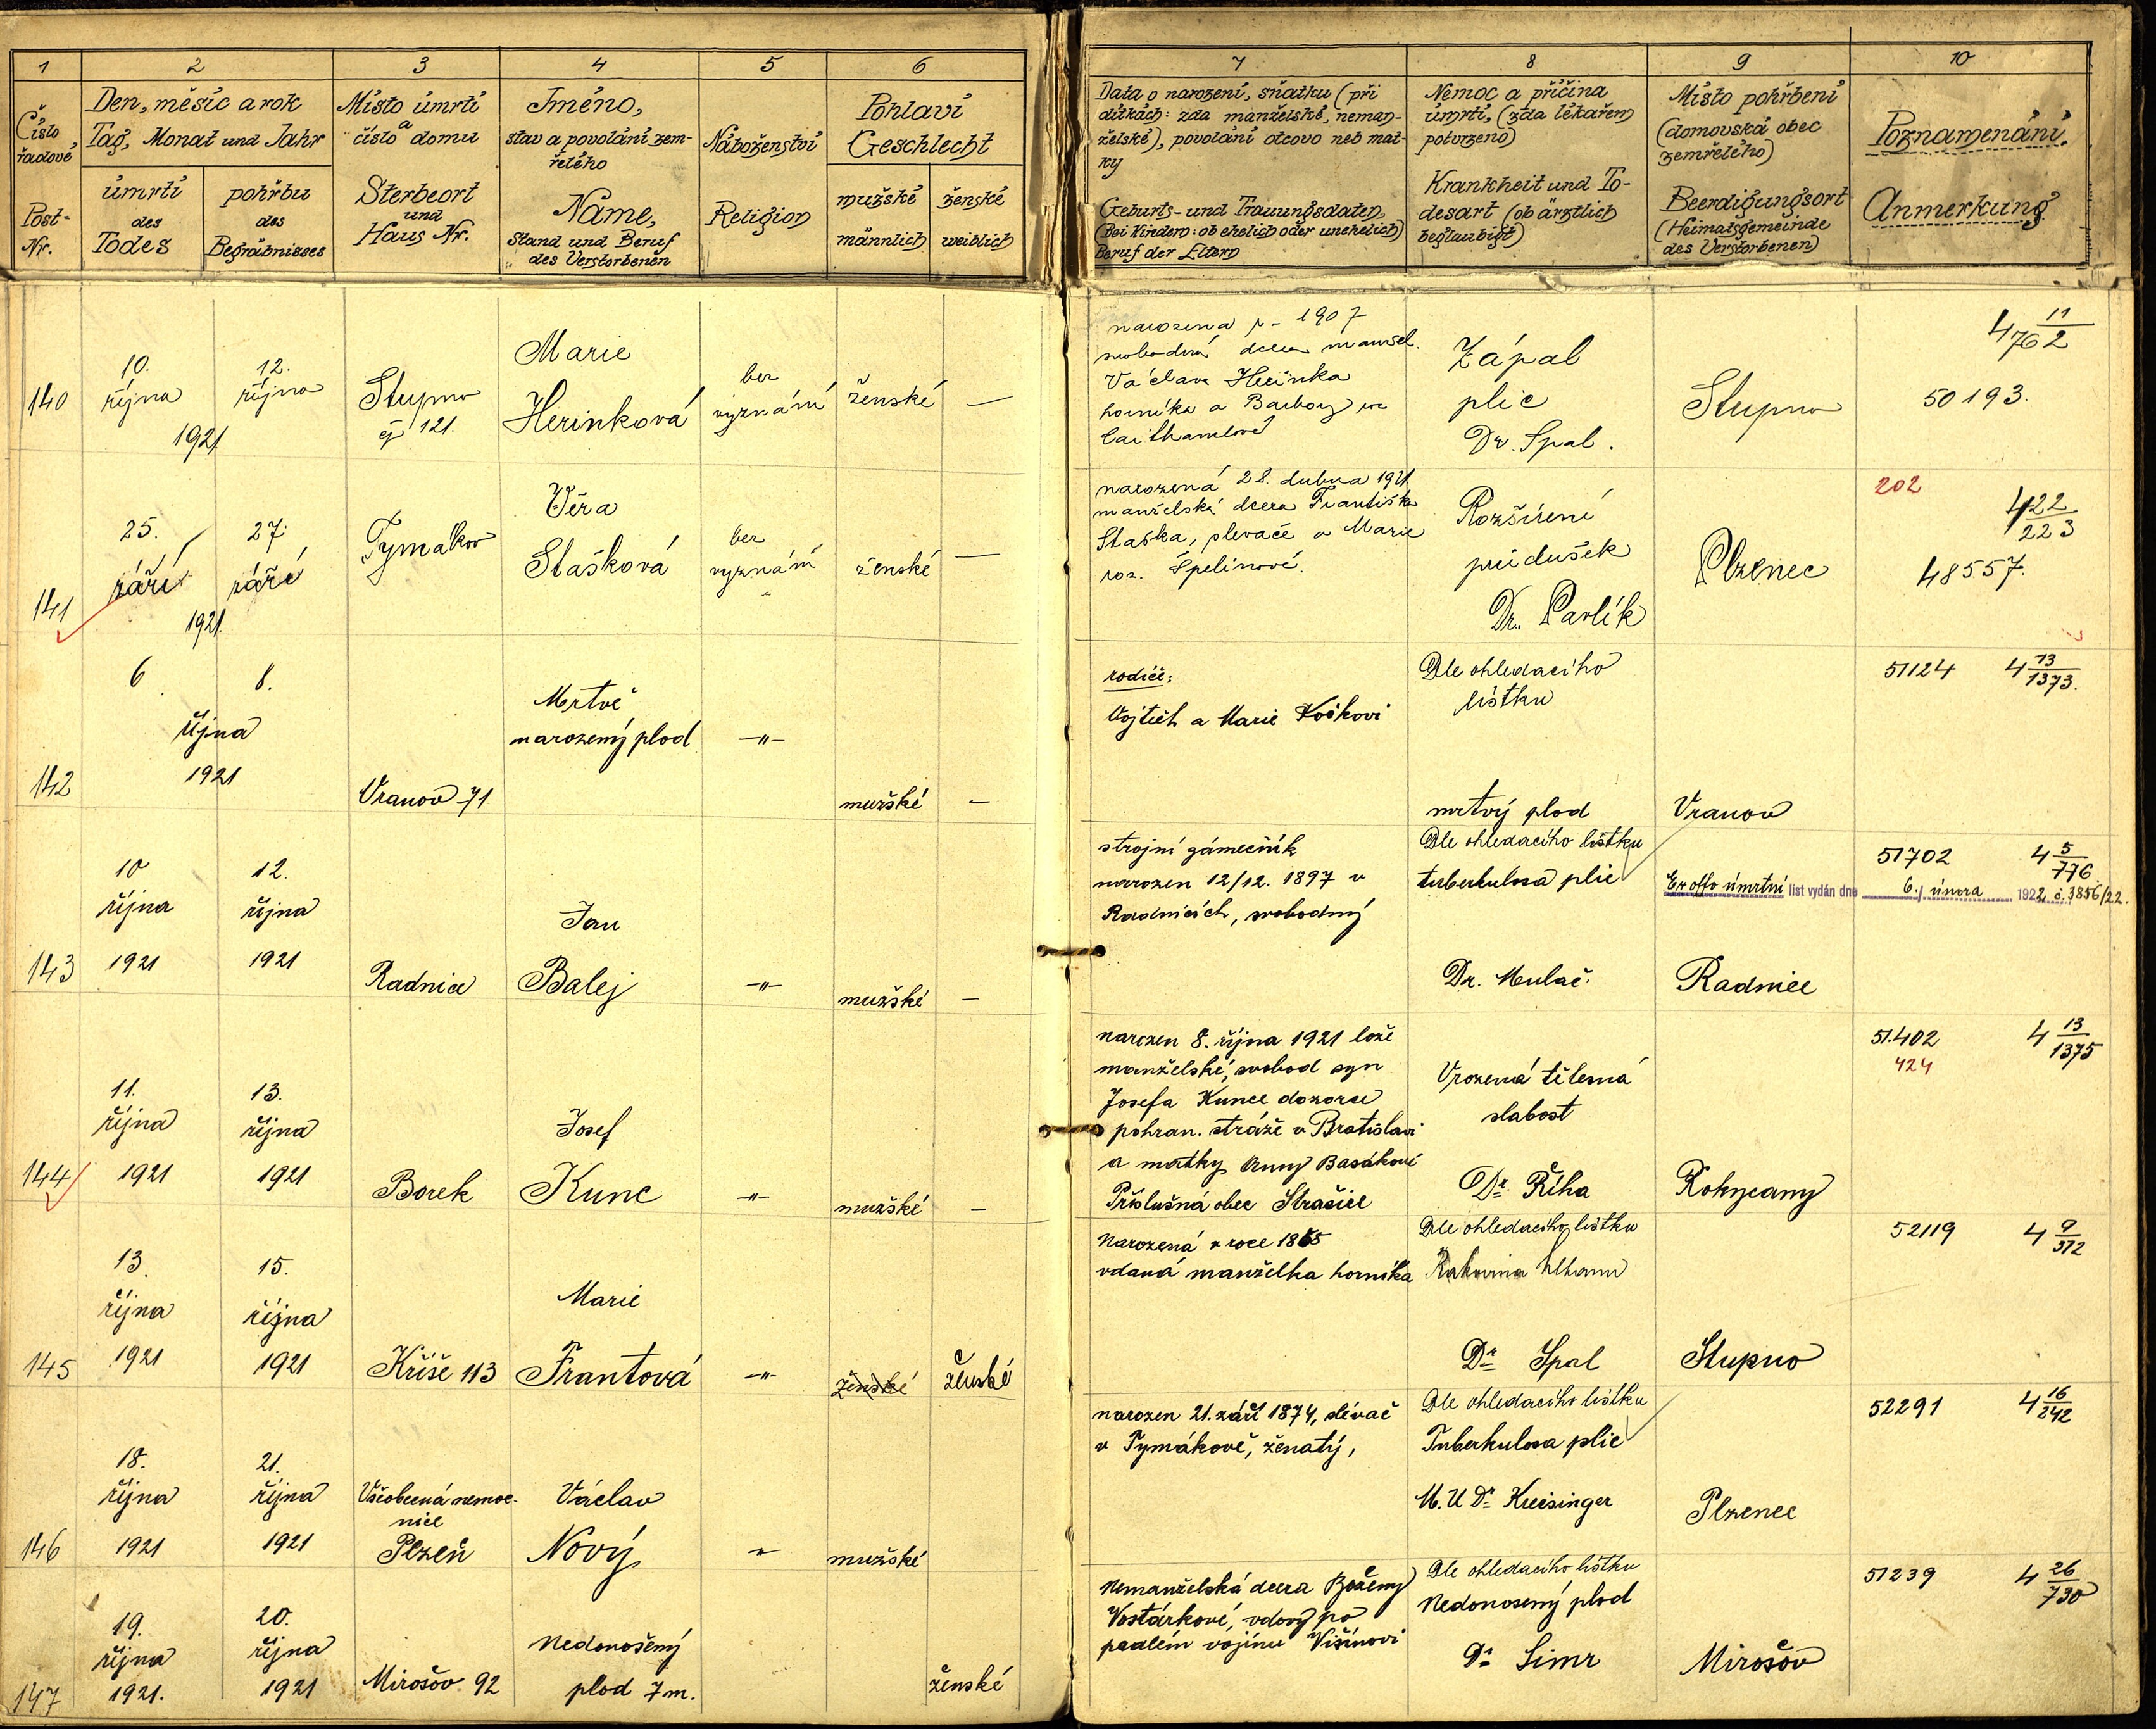 1 2 3 4 5 6 7 8 9 10
Číslo řadové
Post-Nr.
Den, měsíc a rok
Tag, Monat und Jahr
úmrtí
des
Todes
pohřbu
des
Begräbnisses
Místo úmrtí
a
číslo domu
Sterbeort
und
Haus Nr.
Jméno,
stav a povolání zem-
řelého
Name,
Stand und Beruf
des Verstorbenen
Náboženství
Religion
Pohlaví
Geschlecht
mužské
männlich
ženské
weiblich
Data o narození, sňatku (při
dítkách: zda manželské, neman-
želské), povolání otcovo neb mat-
ky
Geburts- und Trauungsdaten
(Bei Kindern: ob ehelich oder unehelich)
Beruf der Eltern
Nemoc a příčina
úmrtí, (zda lékařem
potvrzeno)
Krankheit und To-
desart (ob ärztlich
beglaubigt)
Místo pohřbení
(domovská obec
zemřelého)
Beerdigungsort
(Heimatsgemeinde
des Verstorbenen)
Poznamenání.
Anmerkung
140
10.
října
12.
října
1921
Stupno
čp 121.
Marie
Herinková
bez
vyznání
ženské
—
narozena r. 1907
svobodná dcera manžel.
Václava Herinka
horníka a Barbory
Zápal
plic
Dr. Spal.
Stupno
4 11/762
50193.
141
25.
září
27.
září
1921.
Tymákov
Věra
Stašková
bez
vyznání
ženské
—
narozená 28. dubna 1921
manželská dcera Františka
Staška, slevače a Marie
roz. Špelinové.
Rozšíření
průdušek
Dr. Pavlík
Plzenec
202
4 22/223
48557.
142
6.
8.
října
1921
Vranov 71
Mrtvě
narozený plod
—"—
mužské
—
rodiče:
Vojtěch a Marie Koškovi
Dle ohledacího
lístku
mrtvý plod
Vranov
51124
4 13/1373.
143
10
října
1921
12.
října
1921
Radnice
Jan
Balej
—"—
mužské
—
strojní zámečník
narozen 12/12. 1897 v
Radnicích, svobodný
Dle ohledacího lístku
tuberkulosa plic
Dr. Mulač.
Radnice
51702
4 5/776
Ex offo úmrtní list vydán dne 6. února 1922 č. 3856/22.
144
11.
října
1921
13.
října
1921
Borek
Josef
Kunc
—"—
mužské
—
narozen 8. října 1921 lože
manželské, svobod syn
Josefa Kunce dozorce
pohran. stráže v Bratislavi
a matky Anny Basákové
Příslušná obec Strašice
Vrozená tělesná
slabost
Dr. Říha
Rokycany
51.402
424
4 13/1375
145
13.
října
1921
15.
října
1921
Kříše 113
Marie
Frantová
—"—
ženské
ženské
Narozená v roce 1865
vdaná manželka horníka
Dle ohledacího lístku
Rakovina
Dr Spal
Stupno
52119
4 9/312
146
18.
října
1921
21.
října
1921
Všeobecná nemoc-
nice
Plzeň
Václav
Nový
—"—
mužské
narozen 21. září 1874, slévač
v Tymákově, ženatý,
Dle ohledacího lístku
Tuberkulosa plic
M.U.Dr Kreisinger
Plzenec
52291
4 16/242
147
19.
října
1921.
20.
října
1921
Mirošov 92
Nedonošený
plod 7 m.
ženské
Nemanželská dcera Boženy
Vostárkové, vdovy po
padlém vojínu Višínovi
Dle ohledacího lístku
Nedonosený plod
Dr Simr
Mirošov
51239
4 26/730